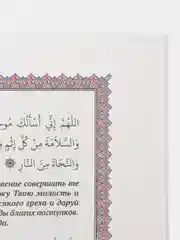 اللَّهُمَّ إِنِّي أَسْأَلُكَ
وَالسَّلَامَةَ مِنْ كُلِّ إِثْمٍ
وَالنَّجَاةَ مِنَ النَّارِ
совершать те
жу Твою милость и
греха и даруй
благих поступков.